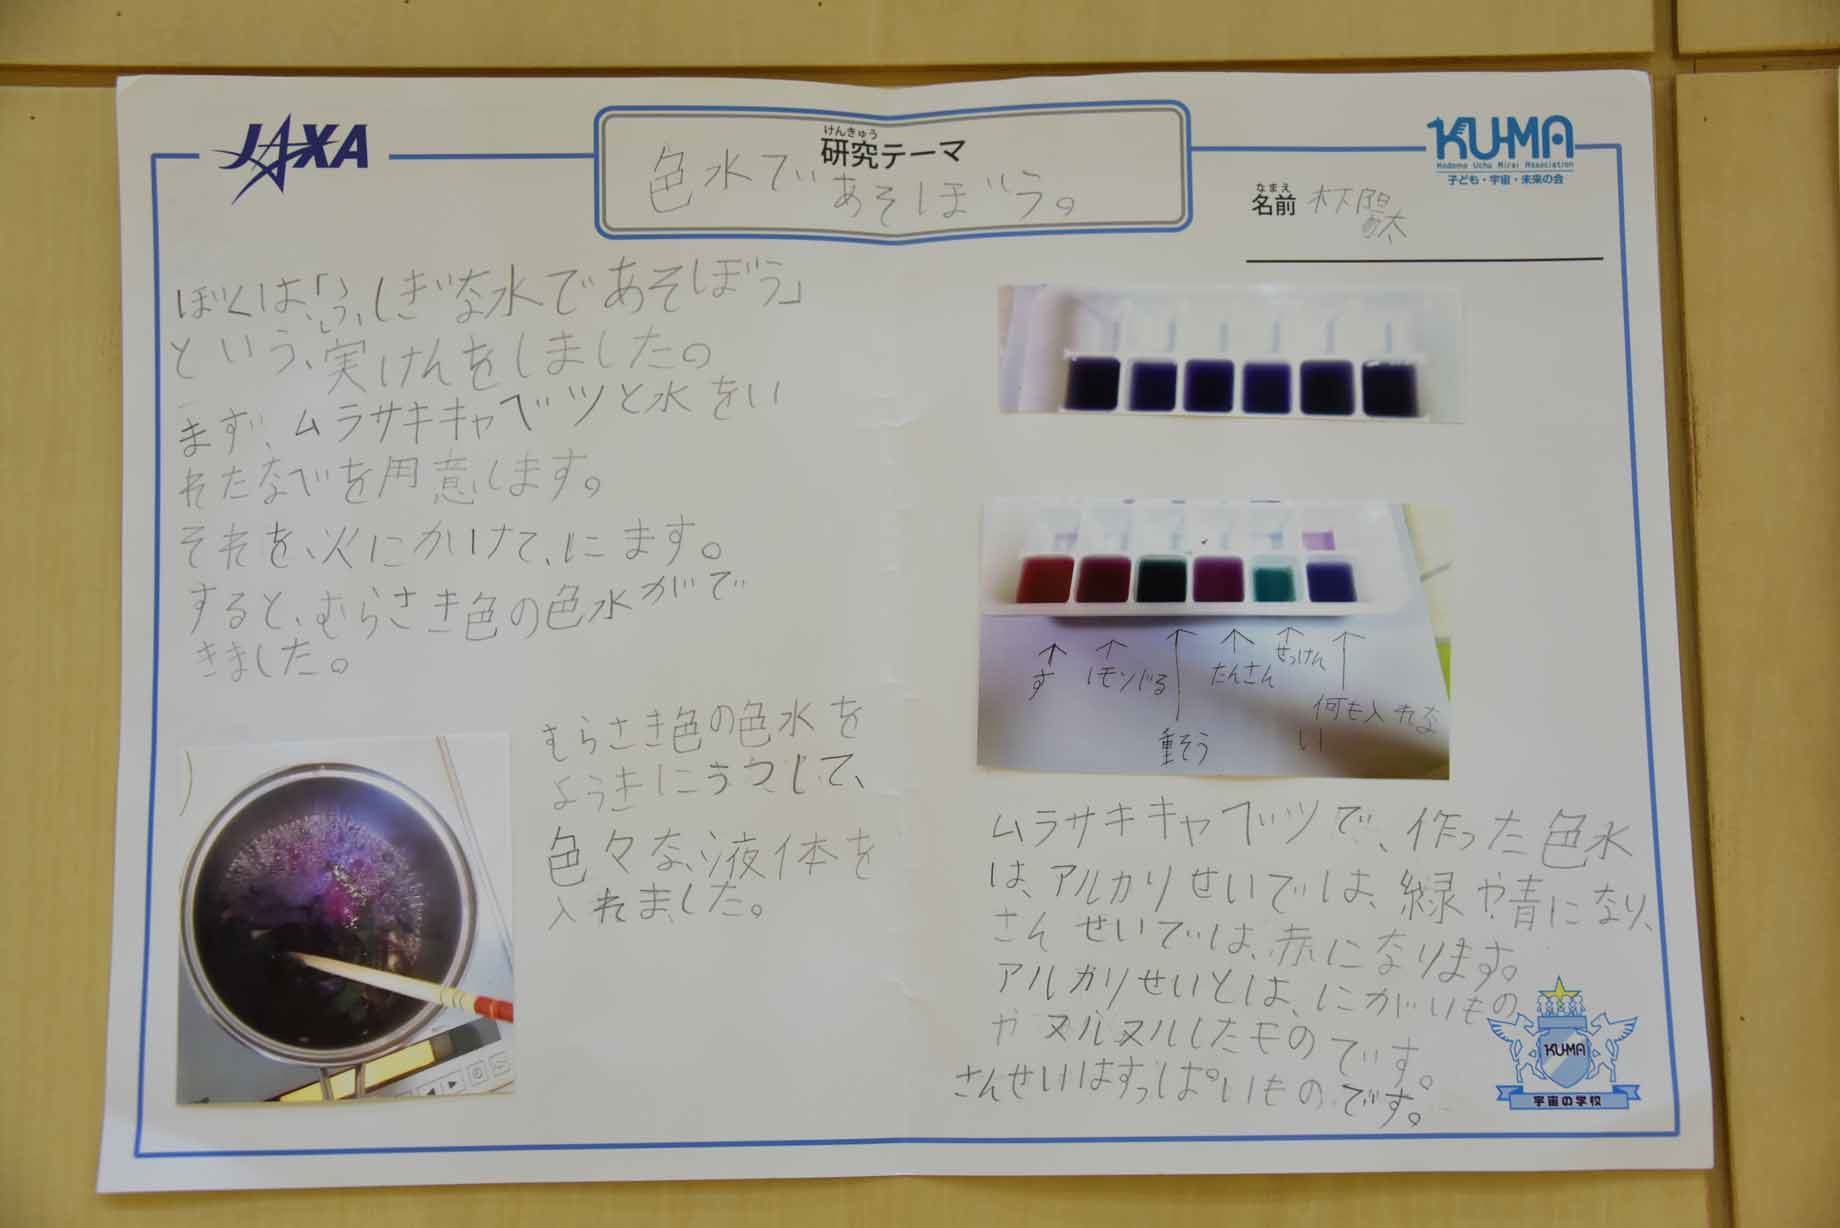 JAXA
けんきゅう
研究テーマ
色水で
あそぼう。
KU-MA
Kodomo Uchu Mirai Association
子ども・宇宙・未来の会
なまえ
名前
陽太
ぼくは、「ふしぎな水であそぼう」
という、実けんをしました。
まず、ムラサキキャベツと水をい
れたなべを用意します。
それを、火にかけて、にます。
すると、むらさき色の色水がで
きました。
むらさき色の色水を
ようきにうつして、
色々な、液体を
入れました。
す
レモンじる
重そう
たんさん
せっけん
何も入れな
い
ムラサキキャベツで、作った色水
は、アルカリせいでは、緑や青になり、
さんせいでは、赤になります。
アルカリせいとは、にがいもの
やヌルヌルしたモのです。
さんせいはすっぱいものです。
KU-MA
宇宙の学校